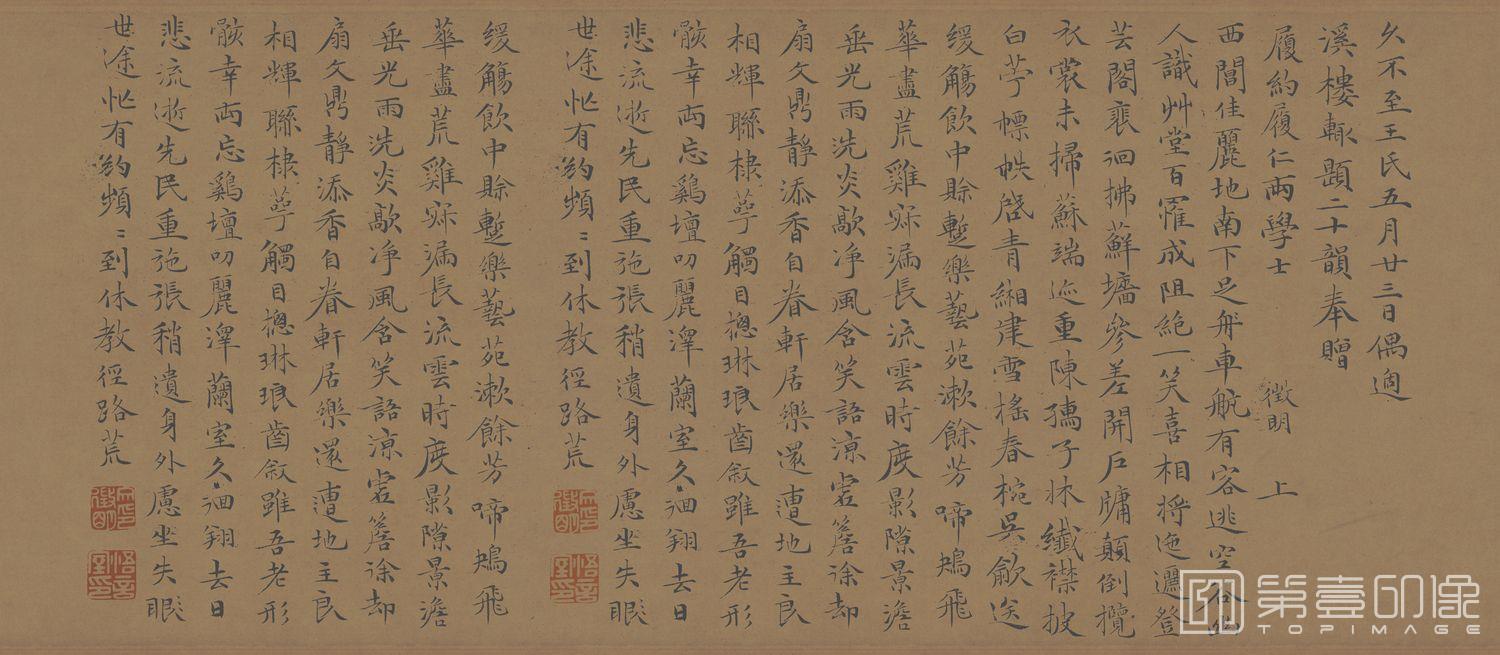 久不至王氏五月廿三日偶過
溪樓輙題二十韻奉贈
履約履仁兩學士 徵明 上
西閶佳麗地南下足舟車航有客逃空谷
人識艸堂百罹成阻絶一笑喜相將迤邐登
芸閣裵徊拂蘚墻參差開戶牖顛倒攬
衣裳未掃蘇端迹重陳孺子牀纖襟披
白苧幖帙啓青緗建雪榣春椀吳歈送
緩觴飲中賒蹔樂藝苑漱餘芳啼鴂飛
華盡荒雞寐漏長流雲時度影隙景澹
垂光雨洗炎歊凈風含笑語涼虗簷徐却
扇文鼎靜添香自眷軒居樂還遭地主良
相輝聯棣萼觸目摠琳琅齒敘雖吾老形
骸幸両忘鷄壇叨麗澤蘭室久𢌞翔去日
悲流逝先民重弛張稍遺身外慮坐失眼
世塗忙有約頻〻到休教徑路荒
緩觴飲中賒蹔樂藝苑漱餘芳啼鴂飛
華盡荒雞寐漏長流雲時度影隙景澹
垂光雨洗炎歊凈風含笑語涼虗簷徐却
扇文鼎靜添香自眷軒居樂還遭地主良
相輝聯棣萼觸目摠琳琅齒敘雖吾老形
骸幸両忘鷄壇叨麗澤蘭室久𢌞翔去日
悲流逝先民重弛張稍遺身外慮坐失眼
世塗忙有約頻〻到休教徑路荒
第壹印像
TOPIMAGE